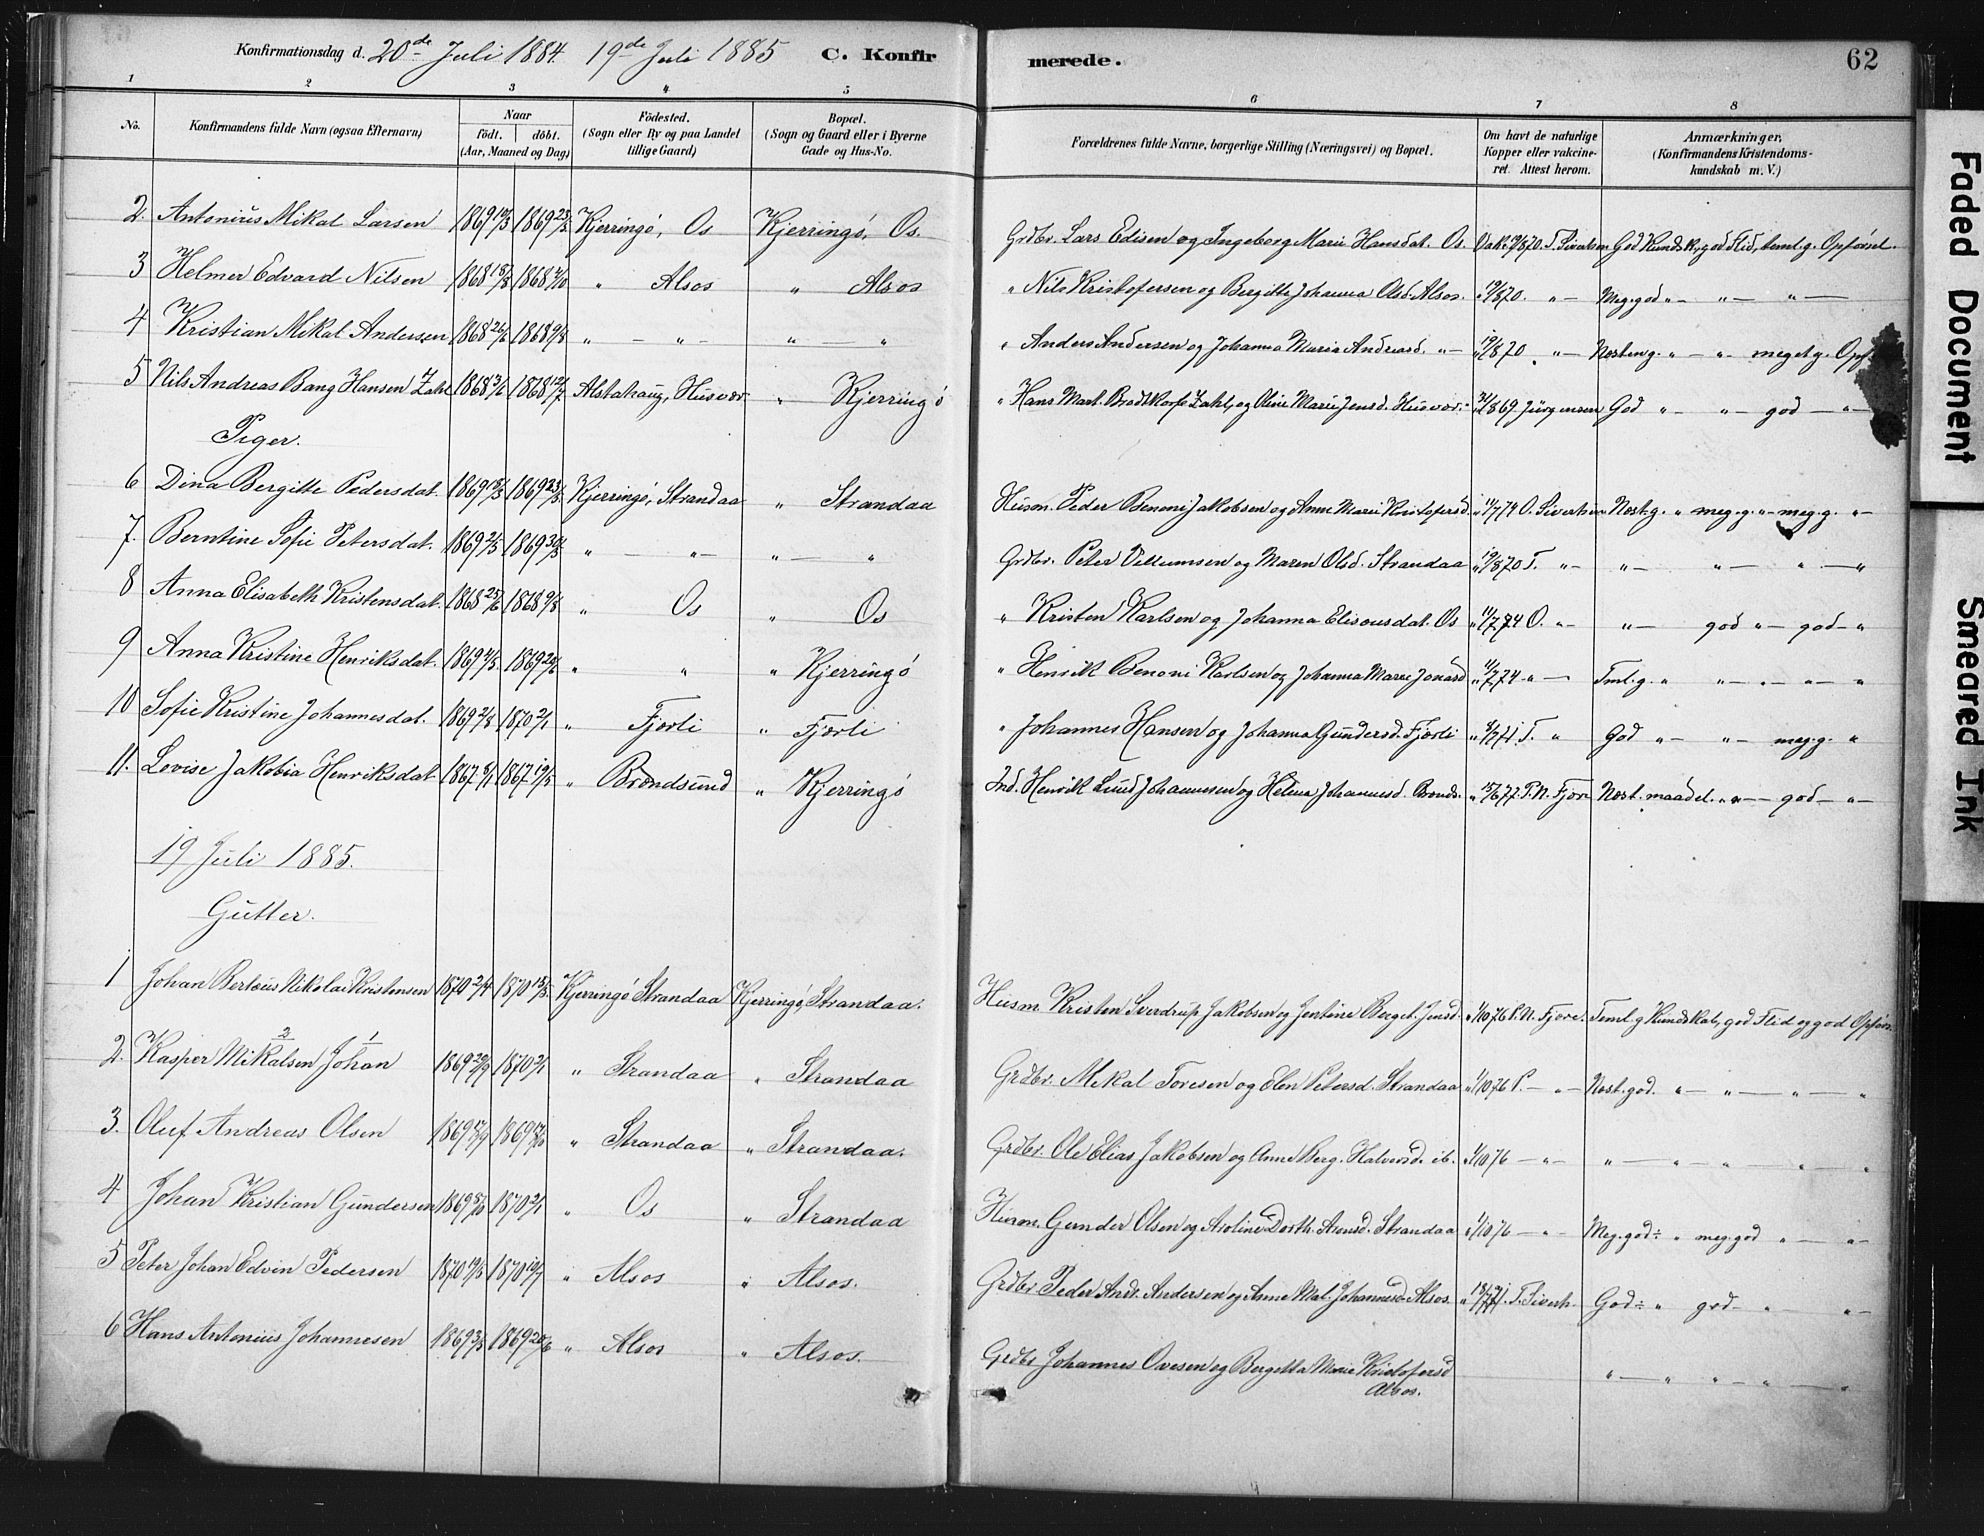 Konfirmationsdag d. 20de Juli 1884. 19de Juli 1885 C. Konfirmerede. 62
1 2 3 4 5 6 7 8
No.
Konfirmandens fulde Navn (ogsaa Efternavn)
Naar
født. døbt.
(Aar, Maaned og Dag)
Fødested.
(Sogn eller By og paa Landet
tillige Gaard)
Bopæl.
(Sogn og Gaard eller i Byerne
Gade og Hus-No.
Forældrenes fulde Navne, borgerlige Stilling (Næringsvei) og Bopæl.
Om havt de naturlige
Kopper eller vakcine-
ret. Attest herom.
Anmærkninger.
(Konfirmandens Kristendoms-
kundskab m. V.)
2. Antonius Mikal Larsen 1869 1869 23/5 Kjerringø, Os Kjerringø, Os Grdbr. Lars Edisen og Ingeborg Marie Hansdat. Os Vak. 19/8 70. T. Sivertsen God Kundsk., god Flid, teml. g. Opførsel
3 Helmer Edvard Nilsen 1868 15/8 1868 4/10 " Alsos " Alsos " Nils Kristofersen og Bergitte Johanna Olsd. Alsos. " 19/8 70. " — Meg. god " — " — " —
4 Kristian Mikal Andersen 1868 26/6 1868 9/8 " — " — " — " " Anders Andersen og Johanna Maria Andreasd. " — " 19/8 70 " — Næsten g. " — " — meget g. Opf.
5 Nils Andreas Bang Hansen Zahl 1868 3/6 1868 12/7 Alstahaug, Husvær " Kjerringø " Hans Mart. Bradtkorfs Zahl, og Oline Marie Jensd. Husvær. " 869 Jürgensen God " — " — god — " —
Piger.
6 Dina Bergitte Pedersdat. 1869 18/3 1869 23/5 Kjerringø, Strandaa " Strandaa Husm. Peder Benoni Jakobsen og Anne Marie Kristofersd. " 11/7 74 O. Sivertsen Næst. g. " meg. g. " — meg. g. " —
7. Berntine Sofie Petersdat. 1869 21/3 1869 30/5 " — " — " — " Grdbr. Peter Villumsen og Maren Olsd. Strandaa " 19/8 70 T. " — " — " — " — "
8 Anna Elisabeth Kristensdat. 1868 25/6 1868 9/8 " Os " Os " Kristen Karlsen og Johanna Elisæusdat. Os " 11/7 74 O. " — " — god " — god — "
9 Anna Kristine Henriksdat. 1869 4/5 1869 20/6 " " " Kjerringø " Henrik Benoni Karlsen og Johanna Marie Jonasd " 11/7 74 " — Teml. g. " " — " — " — "
10 Sofie Kristine Johannesdat. 1869 2/8 1870 2/1 " Fjærli " Fjærli " Johannes Hansen og Johanna Gundersd. Fjærli " 8/7 71. T. " God " — " — meg. g. "
11. Lovise Jakobia Henriksdat. 1867 8/1 1867 19/5 " Brøndsund " Kjerringø Ind. Henrik Lund Johannesen og Helena Johannesd. Brønds. " 15/6 77. P. N. Fjære Næst. maadel. " " — god — " —
19 Juli 1885.
Gutter.
1 Johan Bertæus Nikolai Kristensen 1870 2/4 1870 15/5 Kjerringø Strandaa Kjerringø, Strandaa. Husm. Kristen Sverdrup Jakobsen og Jentine Berget. Jensd. " 1/10 76 P. N. Fjære. Teml. g Kundskab, god Flid og god Opførs.
2 1
2. Kasper Mikalsen Johan 1869 29/9 1870 2/1 " Strandaa " Strandaa Grdbr. Mikal Toresen og Elen Petersd. Strandaa " 1/10 76 P. — " — Næst. god. " — " — " — "
3. Oluf Andreas Olsen 1869 17/9 1869 17/10 " Strandaa " Strandaa. Grdbr. Ole Elias Jakobsen og Anne Berg. Halvorsd. ib. " 1/10 76 — " — " — " — " " "
4 Johan Kristian Gundersen 1869 8/10 1870 2/1 " Os " Strandaa Husm. Gunder Olsen og Aroline Dorth. Aronsd. Strandaa " 1/10 76 — " — Meg. god ÷ " meg. god " — " —
5 Peter Johan Edvin Pedersen 1870 19/5 1870 10/7 " Alsos " Alsos. Grdbr. Peder Andr. Andersen og Anne Mal. Johannesd. Alsos. " 13/7 71. T. Siverts. God ÷ " god — " " —
6 Hans Antonius Johannesen 1869 3/5 1869 20/6 " Alsos " Alsos. Grdbr Johannes Ovesen og Bergetta Marie Kristofersd " — " " — " — "
Alsos.
Faded Document
Smeared Ink